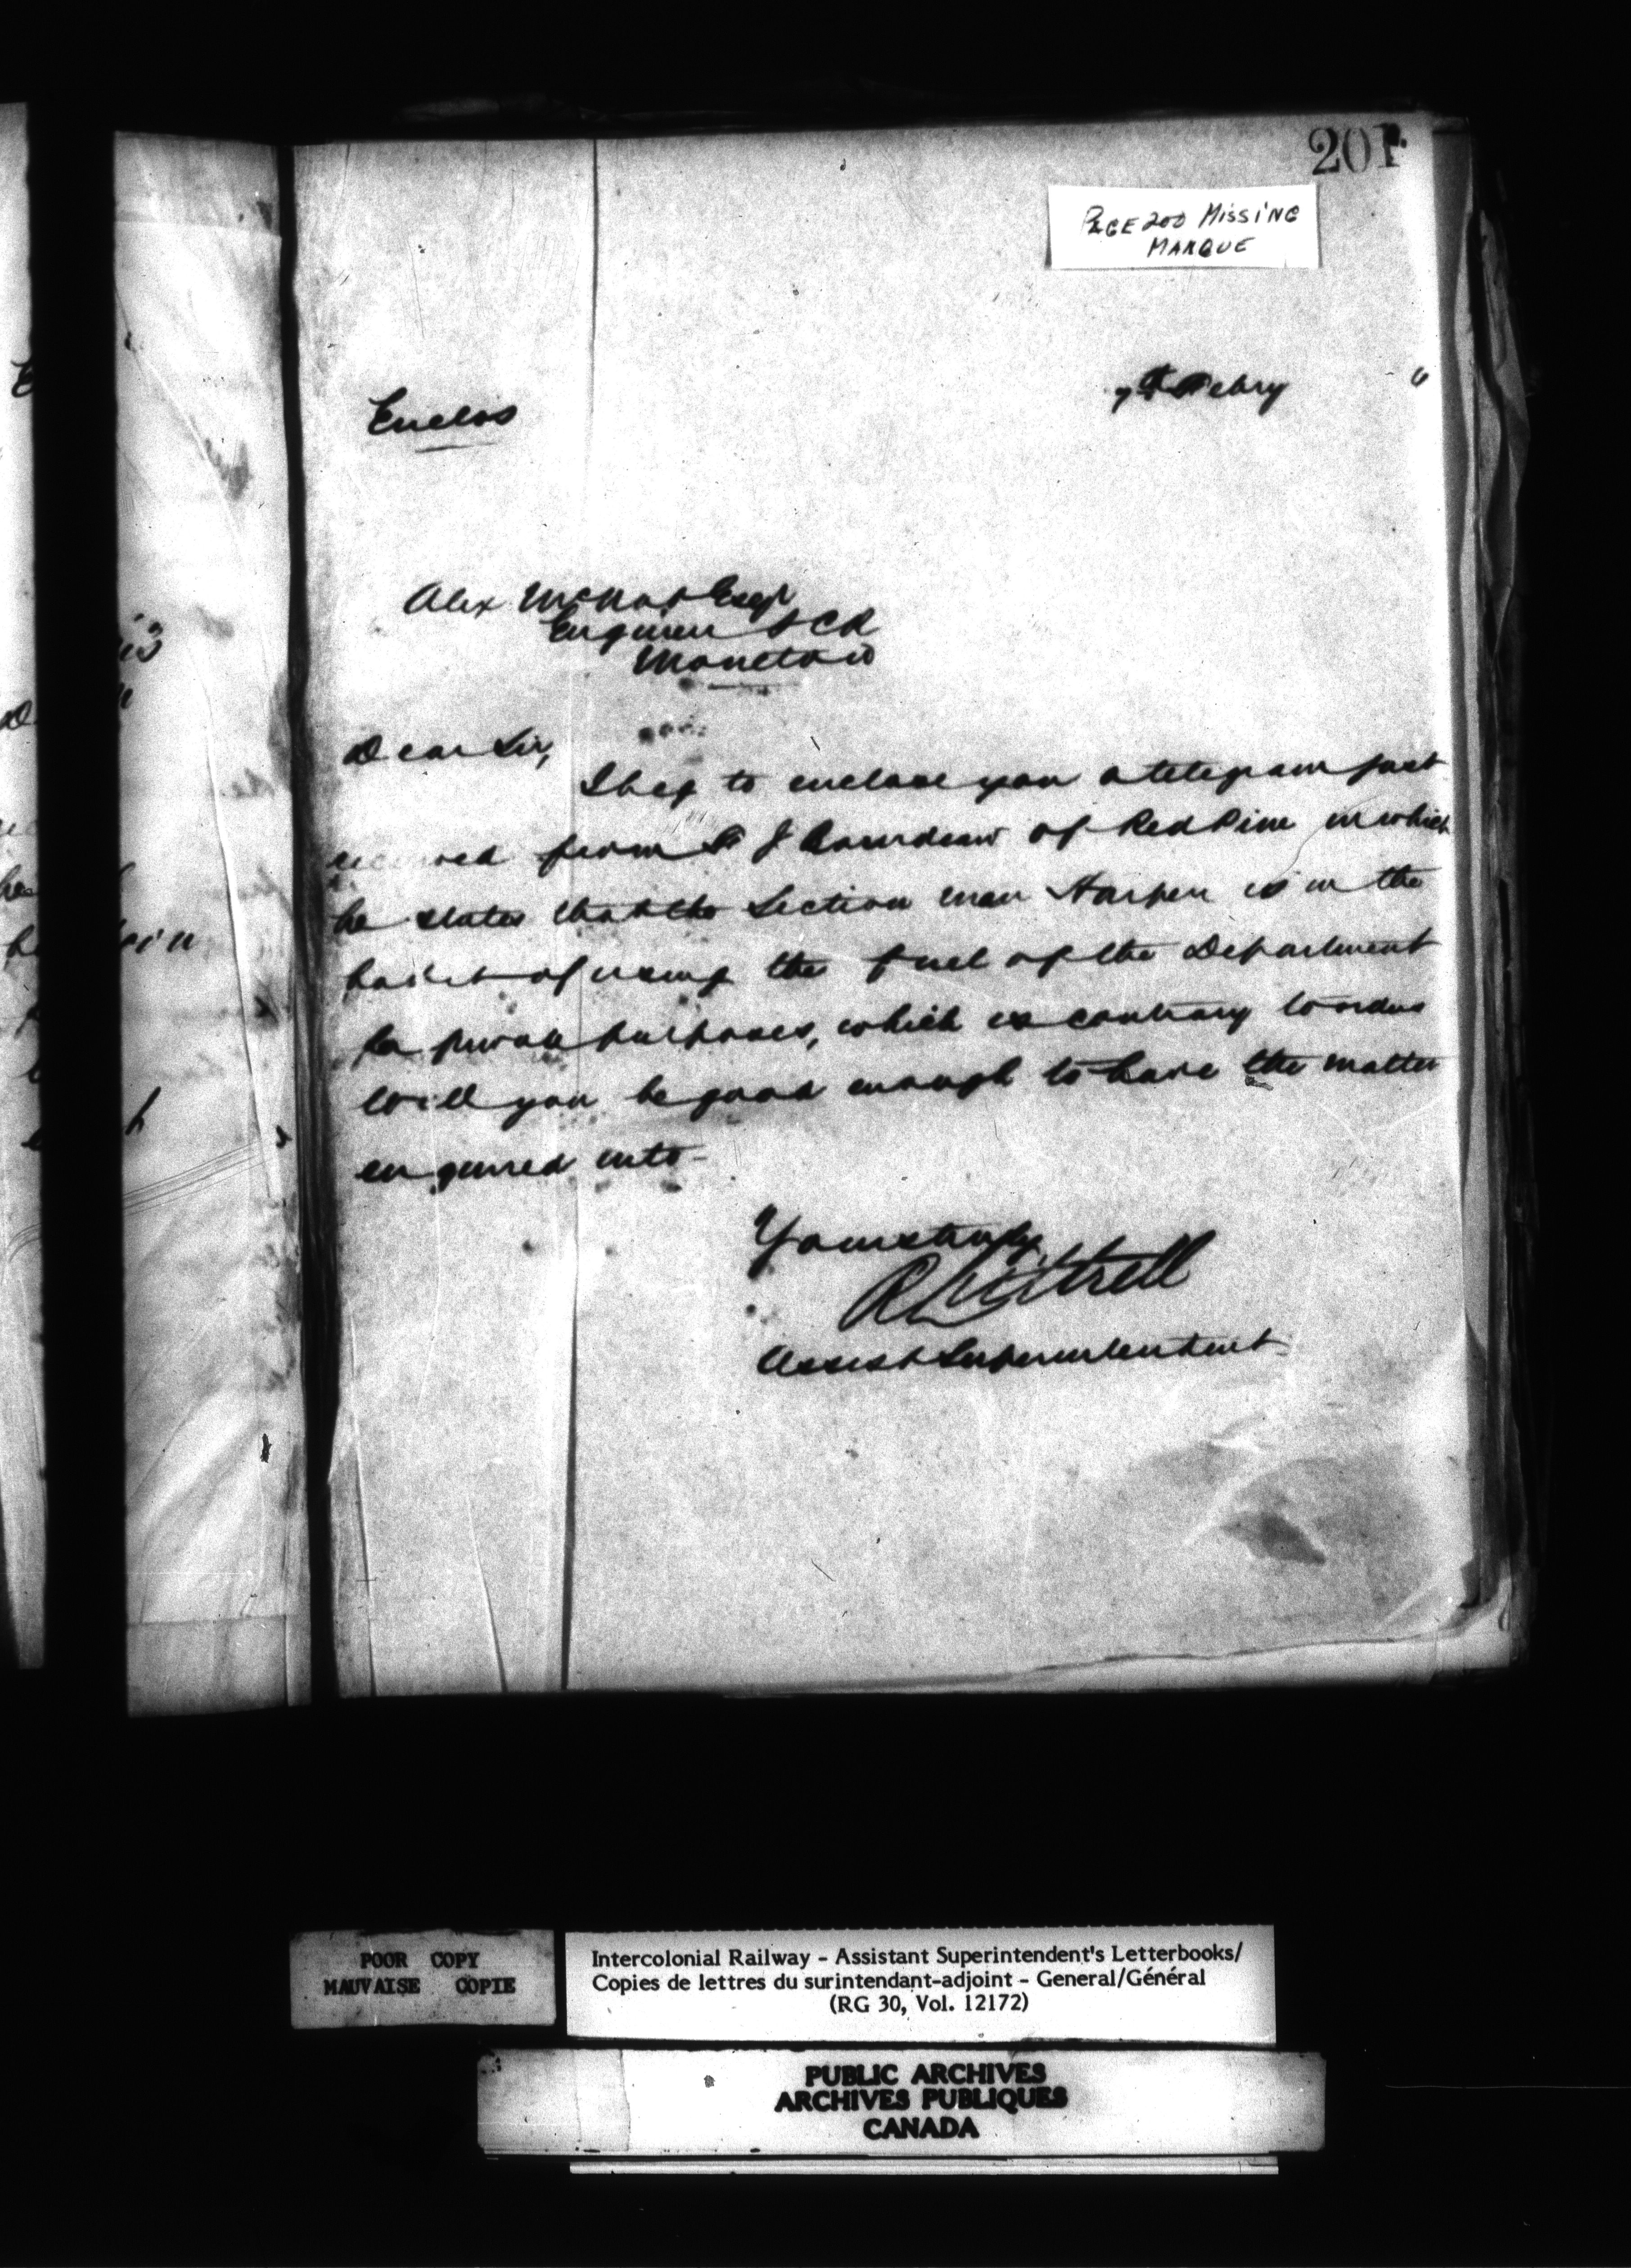 201
PAGE 200 MISSING
MANQUE
7th Febry 6
Enclos
Alex McNab Esqr
Engineer ICR
Moncton
Dear Sir,
I beg to enclose you a telegram just
received from J of Red Pine in which
he states that the Section man Harper is in the
habit of using the fuel of the Department
for private purposes, which is contrary to orders
Will you be good enough to have the matter
enquired into-
Yours truly
R Luttrell
Assist Superintendent
POOR COPY
MAUVAISE COPIE
Intercolonial Railway - Assistant Superintendent's Letterbooks/
Copies de lettres du surintendant-adjoint - General/Général
(RG 30, Vol. 12172)
PUBLIC ARCHIVES
ARCHIVES PUBLIQUES
CANADA